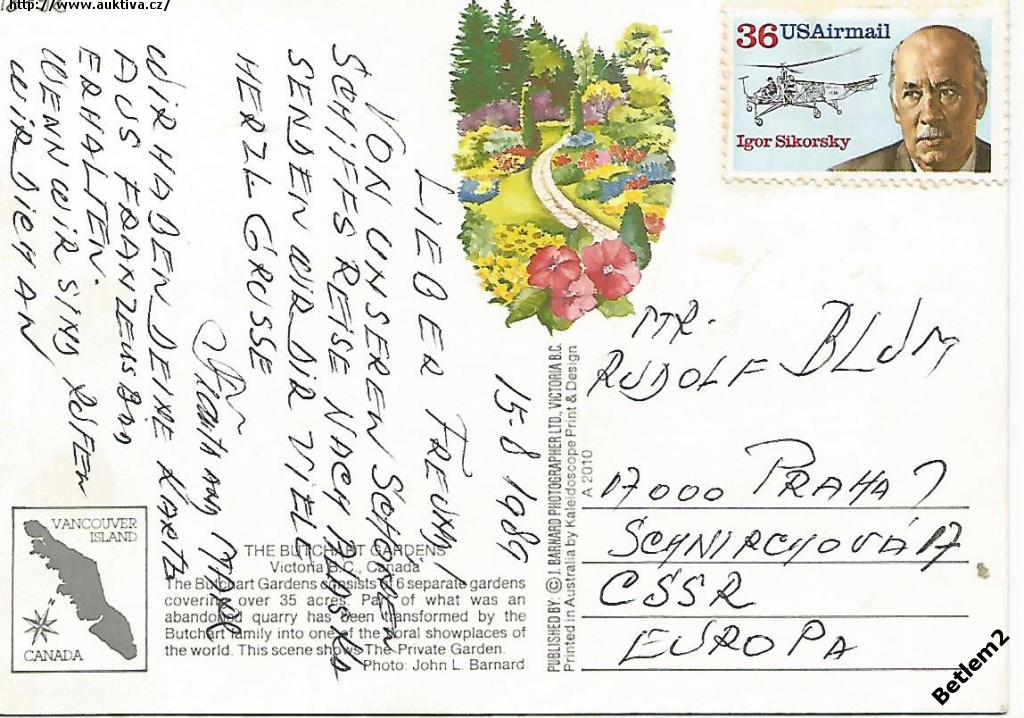 http://www.auktiva.cz/
36 USAirmail
Igor Sikorsky
15-8 1989
LIEBER FREUND!
VON UNSEREN SCHÖNEN
SCHIFFS REISE NACH ALASKA
SENDEN WIR DIR VIELE
HERZL GRÜSSE
MANE
WIR HABEN DEINE KARTE
AUS FRANZENSBAD
ERHALTEN.
WENN WIR SIND RUFEN
WIR DICH AN
MR.
RUDOLF BLUM
17000 PRAHA 7
SCHNIRCHOVÁ 17
CSSR
EUROPA
VANCOUVER
ISLAND
CANADA
THE BUTCHART GARDENS
Victoria B.C., Canada
The Butchart Gardens consists of 6 separate gardens
covering over 35 acres. Part of what was an
abandoned quarry has been transformed by the
Butchart family into one of the floral showplaces of
the world. This scene shows The Private Garden.
Photo: John L. Barnard
PUBLISHED BY: © J. BARNARD PHOTOGRAPHER LTD., VICTORIA B.C.
Printed in Australia by Kaleidoscope Print & Design
A 2010
Betlem2